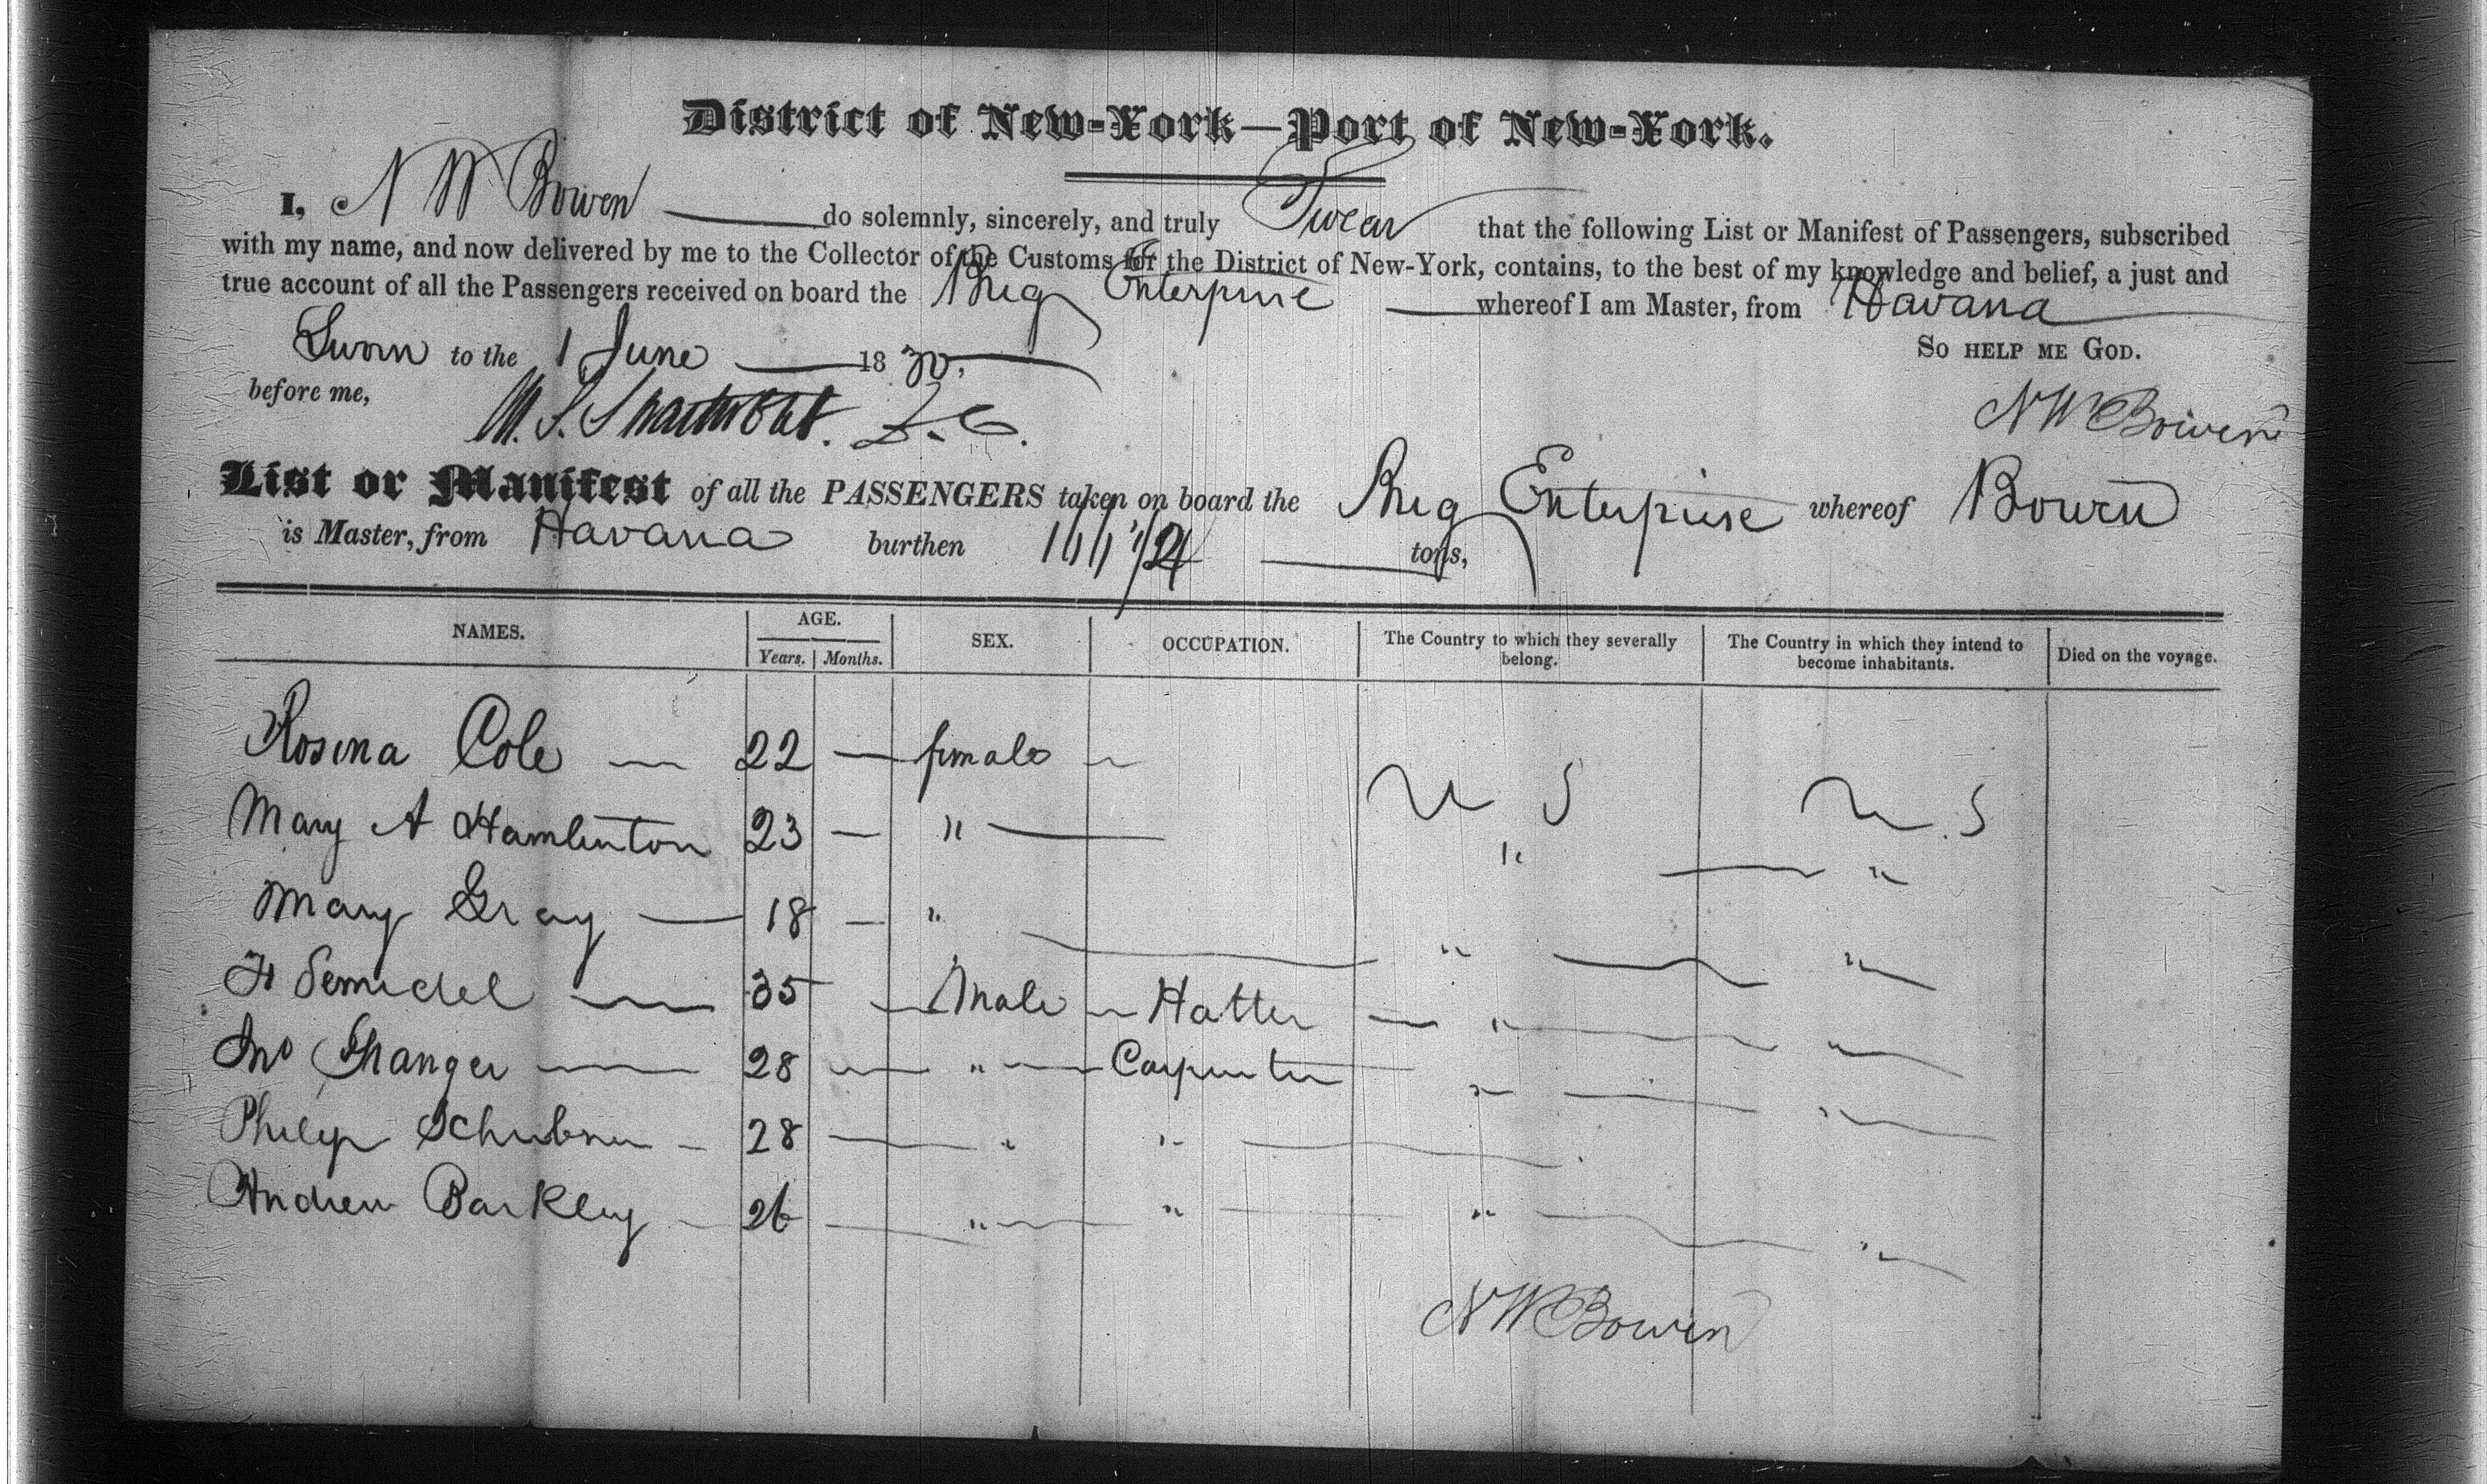 District of New-York—Port of New-York.
I, N W Bowen do solemnly, sincerely, and truly Swear that the following List or Manifest of Passengers, subscribed
with my name, and now delivered by me to the Collector of the Customs for the District of New-York, contains, to the best of my knowledge and belief, a just and
true account of all the Passengers received on board the Brig Enterprise whereof I am Master, from Havana
So help me God.
Sworn to the 1 June 1830,
before me,
N W Bowen
List or Manifest of all the PASSENGERS taken on board the Brig Enterprise whereof Bowen
is Master, from Havana burthen tons,
NAMES. AGE. SEX. OCCUPATION. The Country to which they severally belong. The Country in which they intend to become inhabitants. Died on the voyage.
Years. Months.
Rosina Cole — 22 — female — U S U. S
Mary A Hamlinton 23 — " — " — "
Mary Gray — 18 — " — " — "
35 — Male — Hatter — " — "
Jno 28 — " — Carpenter " — "
Philip 28 — " " —
Andrew Barkley — 26 — " — " — " — "
N W Bowen